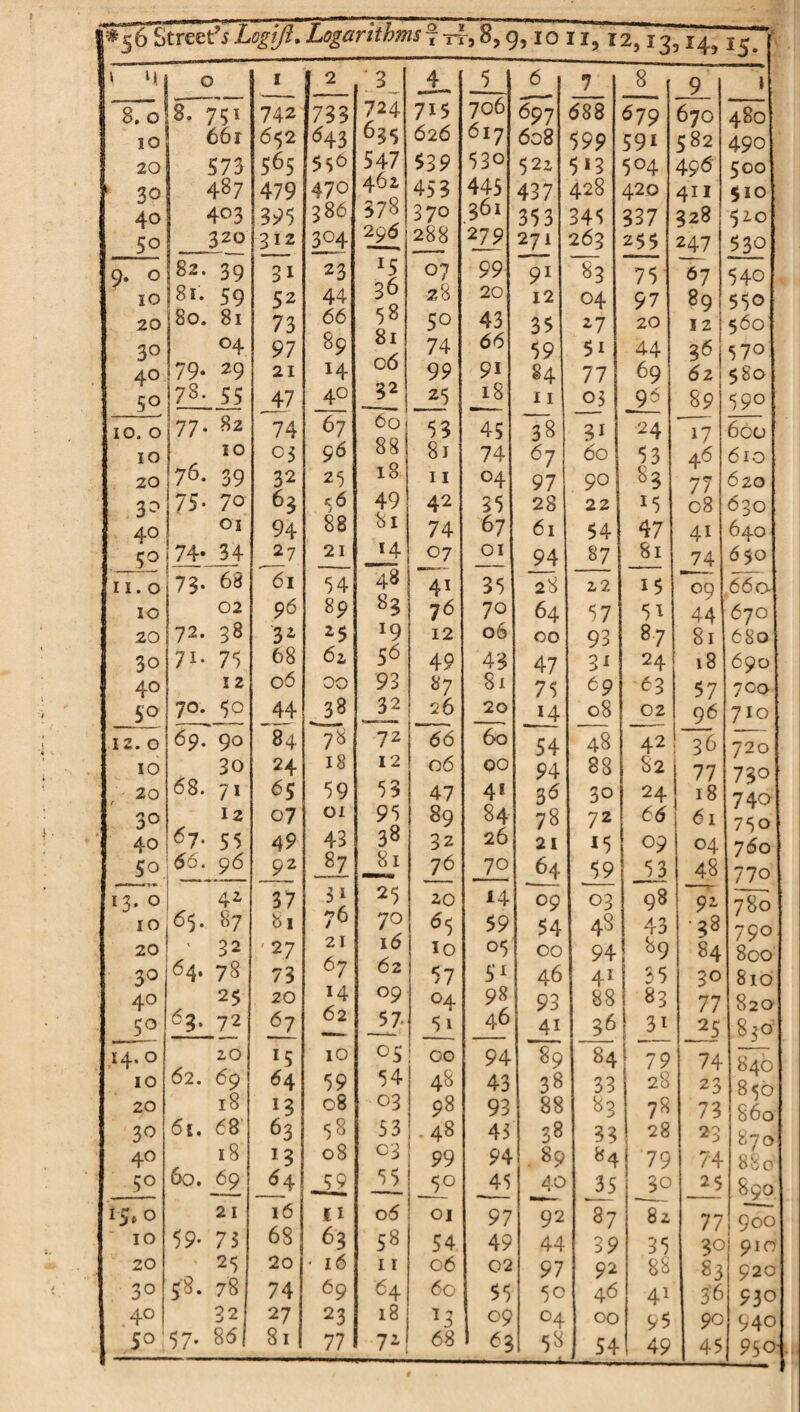 *56 Street's Logist. Logarithms 8, 9, 10 11, 12, 13, 14, 15.
' " 0 1 2 3 4 5 6 7 8 9 "
8. 0 8. 751 742 733 724 715 706 697 688 679 670 480
10 661 652 643 635 626 617 608 599 591 582 490
20 573 565 556 547 539 530 522 513 504 496 500
30 487 479 470 462 453 445 437 428 420 411 510
40 403 395 386 378 370 361 353 345 337 328 520
50 320 312 304 296 288 279 271 263 255 247 530
9. 0 82. 39 31 23 15 07 99 91 83 75 67 540
10 81. 59 52 44 36 28 20 12 04 97 89 550
20 80. 81 73 66 58 50 43 35 27 20 12 560
30 04 97 89 81 74 66 59 51 44 36 570
40 79. 29 21 14 06 99 91 84 77 69 62 580
50 78. 55 47 40 32 25 18 11 03 96 89 590
10. 0 77. 82 74 67 60 53 45 38 31 24 17 600
10 10 03 96 88 81 74 67 60 53 46 610
20 76. 39 32 25 18 11 04 97 90 83 77 620
30 75. 70 63 56 49 42 35 28 22 15 08 630
40 01 94 88 81 74 67 61 54 47 41 640
50 74. 34 27 21 14 07 01 94 87 81 74 650
11. 0 73. 68 61 54 48 41 35 28 22 15 09 660
10 02 96 89 83 76 70 64 57 51 44 670
20 72. 38 32 25 19 12 06 00 93 87 81 680
30 71. 75 68 62 56 49 43 47 31 24 18 690
40 12 06 00 93 87 81 75 69 63 57 700
50 70. 50 44 38 32 26 20 14 08 02 96 710
12. 0 69. 90 84 78 72 66 60 54 48 42 36 720
10 30 24 18 12 06 00 94 88 82 77 730
20 68. 71 65 59 53 47 41 36 30 24 18 740
30 12 07 01 95 89 84 78 72 66 61 750
40 67. 55 49 43 38 32 26 21 15 09 04 760
50 66. 96 92 87 81 76 70 64 59 53 48 770
13. 0 42 37 31 25 20 14 09 03 98 92 780
10 65. 87 81 76 70 65 59 54 48 43 38 790
20 32 27 21 16 10 05 00 94 89 84 800
30 64. 78 73 67 62 57 51 46 41 35 30 810
40 25 20 14 09 04 98 93 88 83 77 820
50 63. 72 67 62 57 51 46 41 36 31 25 830
14. 0 20 15 10 05 00 94 89 84 79 74 840
10 62. 69 64 59 54 48 43 38 33 28 23 850
20 18 13 08 03 98 93 88 83 78 73 860
30 61. 68 63 58 53 48 43 38 33 28 23 870
40 18 13 08 03 99 94 89 84 79 74 880
50 60. 69 64 59 55 50 45 40 35 30 25 890
15. 0 21 16 11 06 01 97 92 87 82 77 900
10 59. 73 68 63 58 54 49 44 39 35 30 910
20 25 20 16 11 06 02 97 92 88 83 920
30 58. 78 74 69 64 60 55 50 46 41 36 930
40 32 27 23 18 13 09 04 00 95 90 940
50 57. 86 81 77 72 68 63 58 54 49 45 950